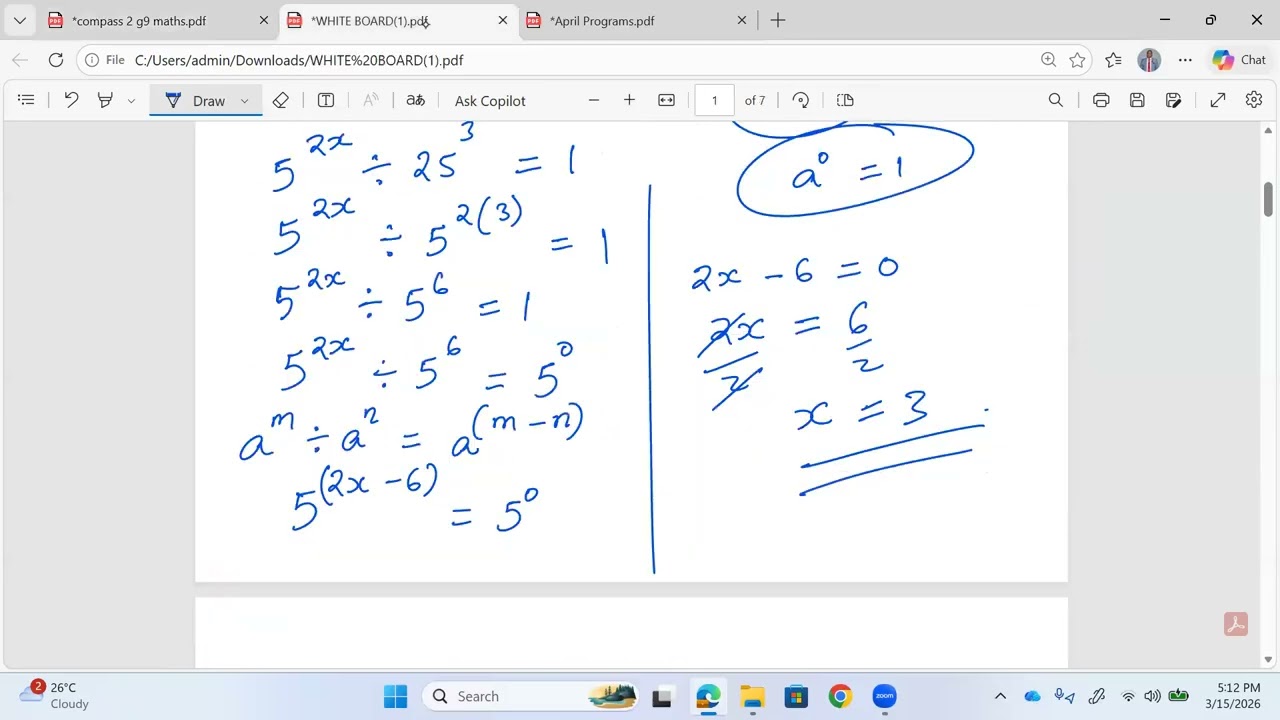 *compass 2 g9 maths.pdf
*WHITE BOARD(1).pdf
*April Programs.pdf
File C:/Users/admin/Downloads/WHITE%20BOARD(1).pdf
Chat
Draw
aあ
Ask Copilot
1 of 7
5^{2x} ÷ 25^3 = 1
5^{2x} ÷ 5^{2(3)} = 1
5^{2x} ÷ 5^6 = 1
5^{2x} ÷ 5^6 = 5^0
a^m ÷ a^n = a^{(m - n)}
5^{(2x - 6)} = 5^0
a^0 = 1
2x - 6 = 0
2x/2 = 6/2
x = 3
2
26°C
Cloudy
Search
zoom
5:12 PM
3/15/2026